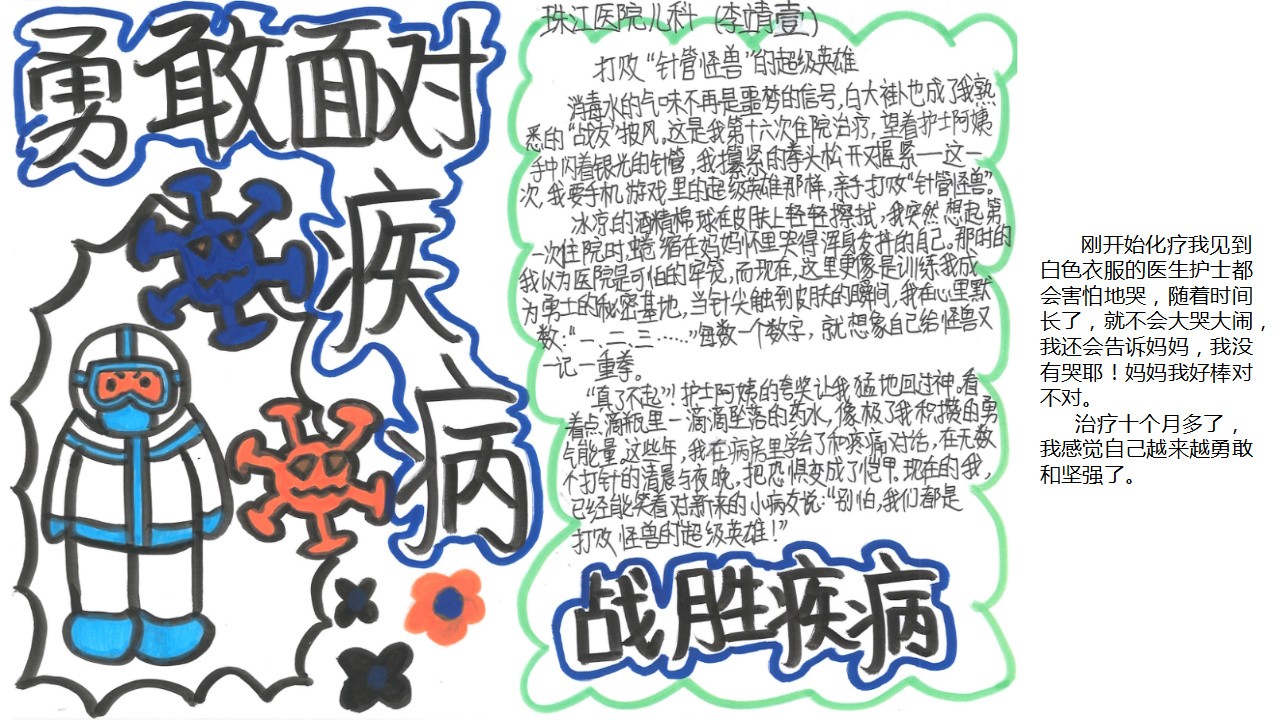 勇敢面对
疾
病
珠江医院儿科（李靖壹）
打败“针管怪兽”的超级英雄
消毒水的气味不再是噩梦的信号,白大褂也成了我熟
悉的“战友”披风。这是我第十六次住院治疗,望着护士阿姨
手中闪着银光的针管,我攥紧的拳头松开又握紧——这一
次,我要手机游戏里的超级英雄那样,亲手打败“针管怪兽”。
冰凉的酒精棉球在皮肤上轻轻擦拭,我突然想起第
一次住院时,蜷缩在妈妈怀里哭得浑身发抖的自己。那时的
我以为医院是可怕的牢笼,而现在,这里更像是训练我成
为勇士的秘密基地,当针尖触到皮肤的瞬间,我在心里默
数:“一、二、三……”每数一个数字,就想象自己给怪兽又
一记一重拳。
“真了不起”!护士阿姨的夸奖让我猛地回过神。看
着点滴瓶里一滴滴坠落的药水,像极了我积攒的勇
气能量。这些年,我在病房里学会了和疼痛对话,在无数
个打针的清晨与夜晚,把恐惧变成了铠甲。现在的我,
已经能笑着对新来的小病友说:“别怕,我们都是
打败怪兽的“超级英雄!”
战胜疾病
刚开始化疗我见到
白色衣服的医生护士都
会害怕地哭，随着时间
长了，就不会大哭大闹，
我还会告诉妈妈，我没
有哭耶！妈妈我好棒对
不对。
治疗十个月多了，
我感觉自己越来越勇敢
和坚强了。